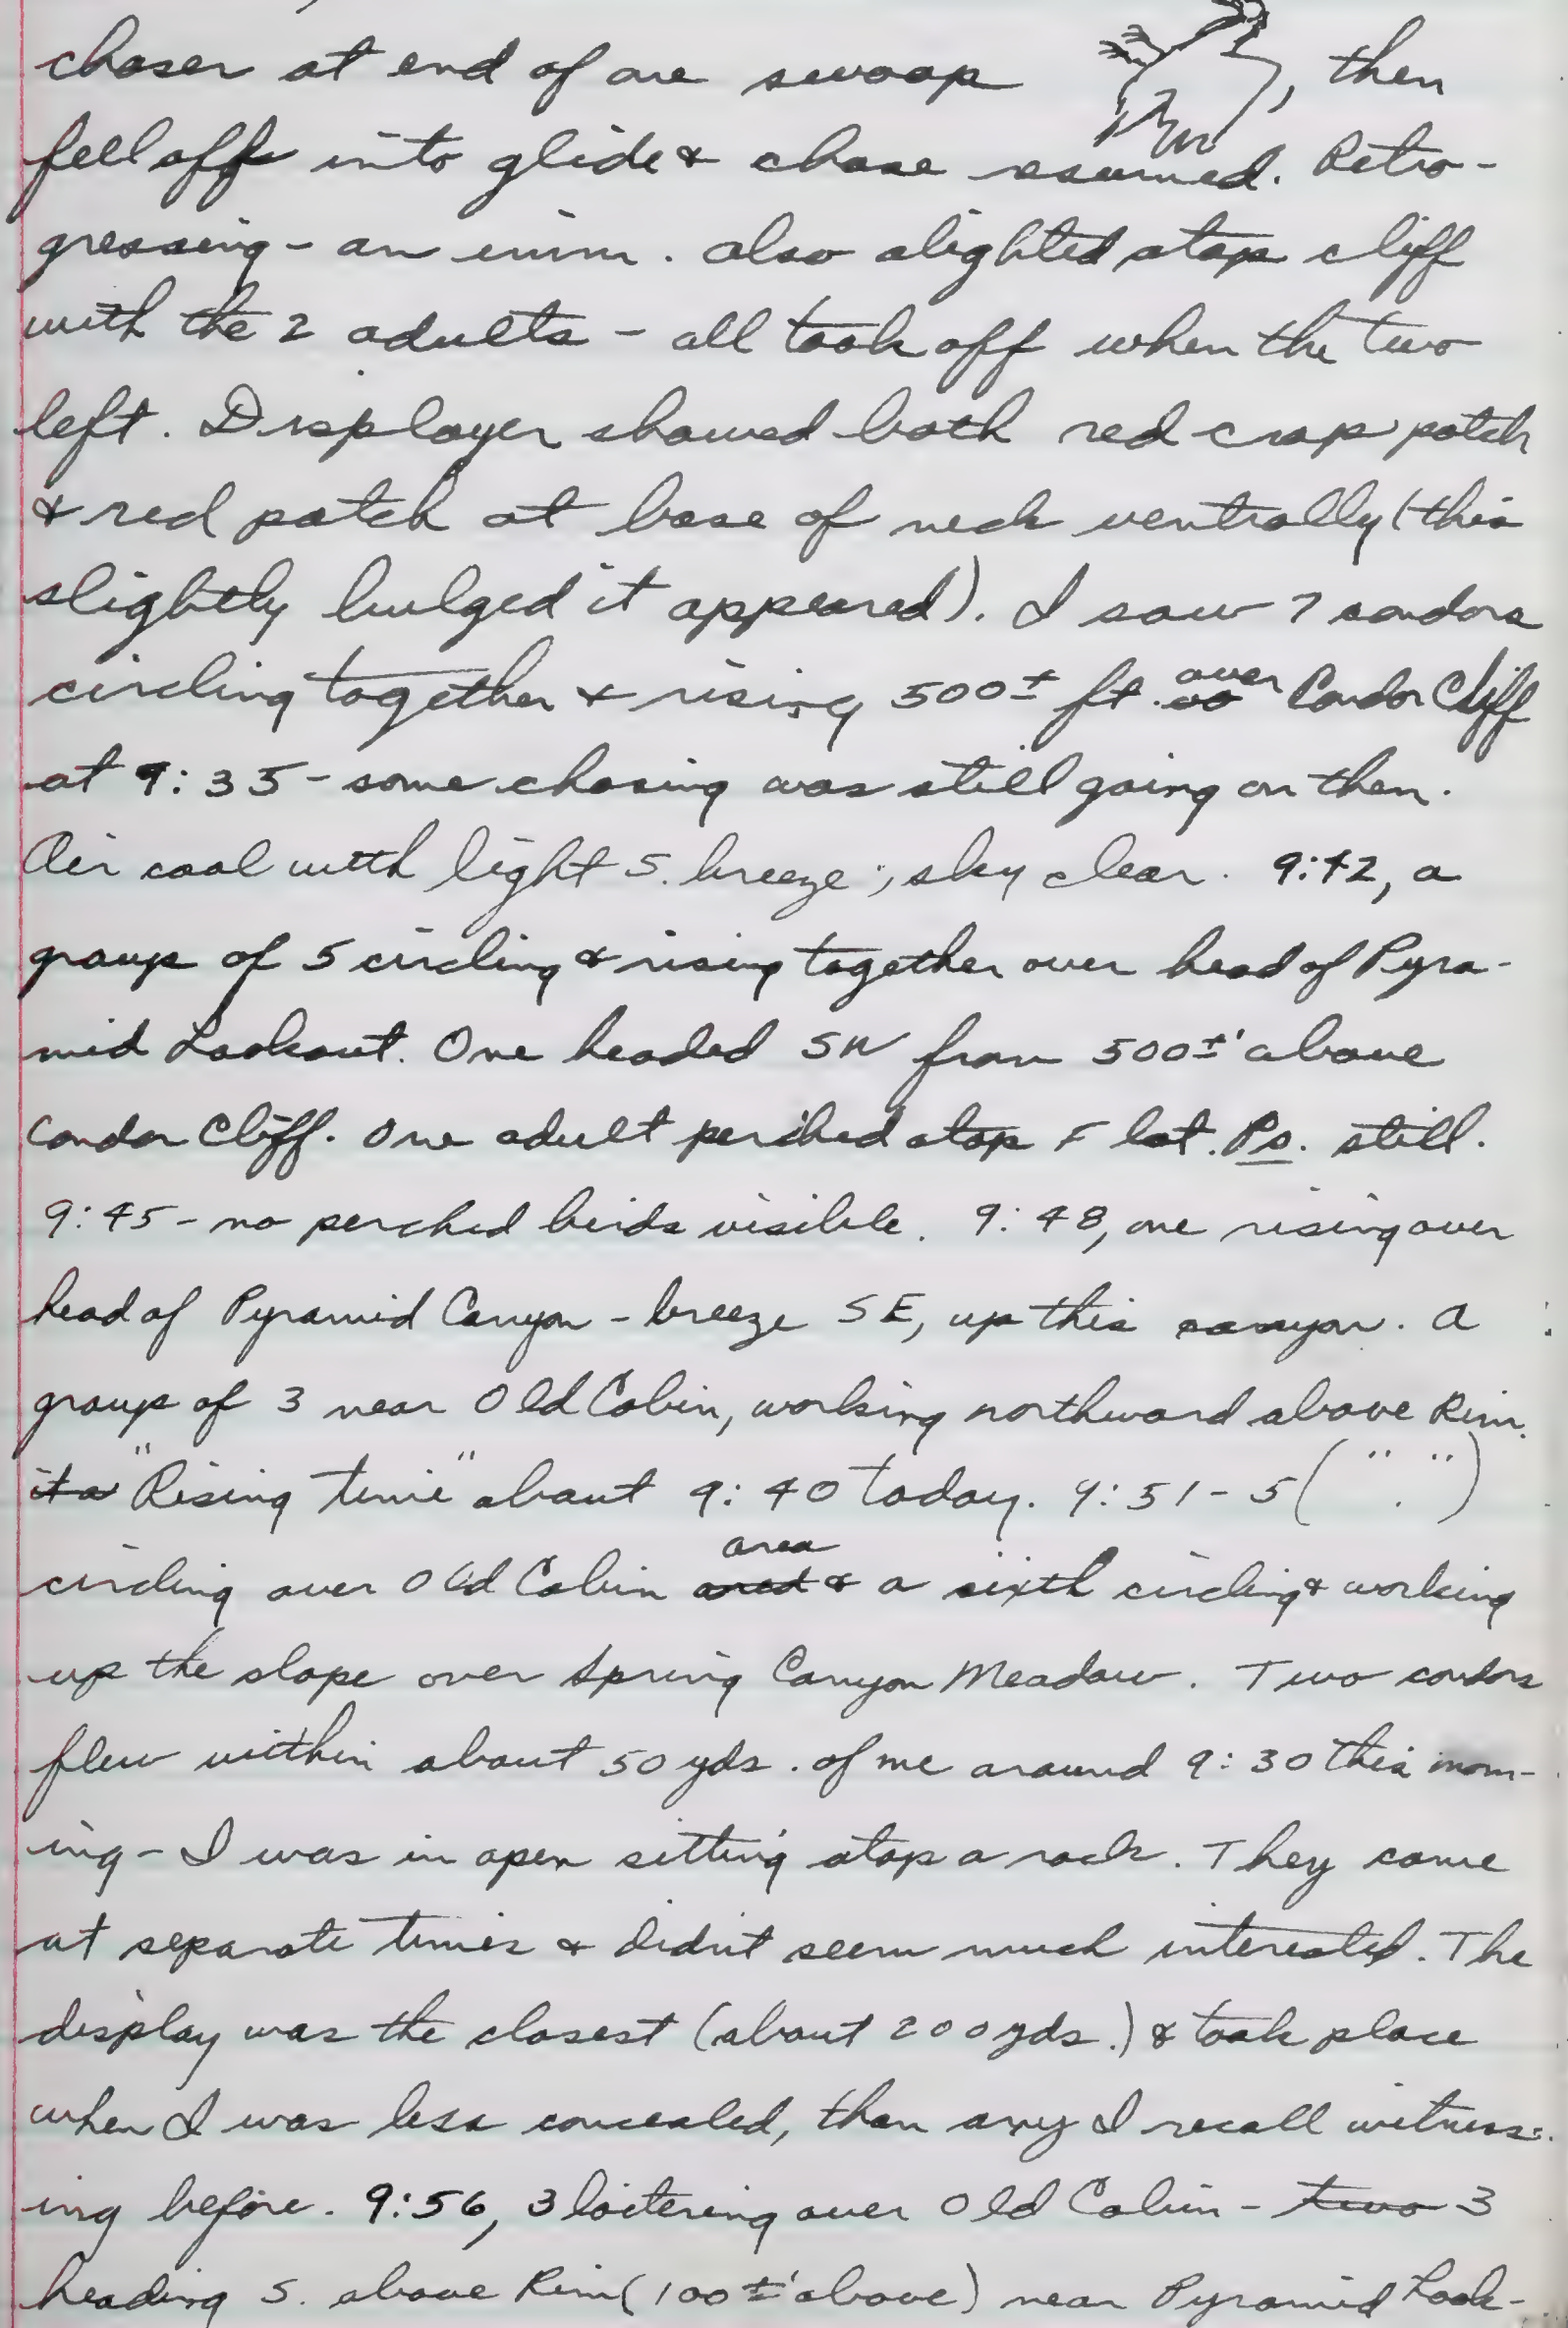 chaser at end of one swoop , then
fell off into glide & chase resumed. Retro-
gressing - an imm. also alighted atop cliff
with the 2 adults - all took off when the two
left. Displayer showed both red crop patch
& red patch at base of neck ventrally (this
slightly bulged it appeared). I saw 7 condors
circling together & rising 500± ft. over Condor Cliff
at 9:35 - some chasing was still going on then.
Air cool with light S. breeze; sky clear. 9:42, a
group of 5 circling & rising together over head of Pyra-
mid Lookout. One headed SW from 500±' above
Condor Cliff. One adult perched atop F lot. Ps. still.
9:45 - no perched birds visible. 9:48, one rising over
head of Pyramid Canyon - breeze SE, up this canyon. A
group of 3 near Old Cabin, working northward above Rim.
"Rising time" about 9:40 today. 9:51 - 5 (" . ")
circling over Old Cabin area & a sixth circling & working
up the slope over Spring Canyon Meadow. Two condors
flew within about 50 yds. of me around 9:30 this morn-
ing - I was in open sitting atop a rock. They came
at separate times & didn't seem much interested. The
display was the closest (about 200 yds.) & took place
when I was less concealed, than any I recall witness-
ing before. 9:56, 3 loitering over Old Cabin - two 3
heading S. above Rim (100±' above) near Pyramid Look-